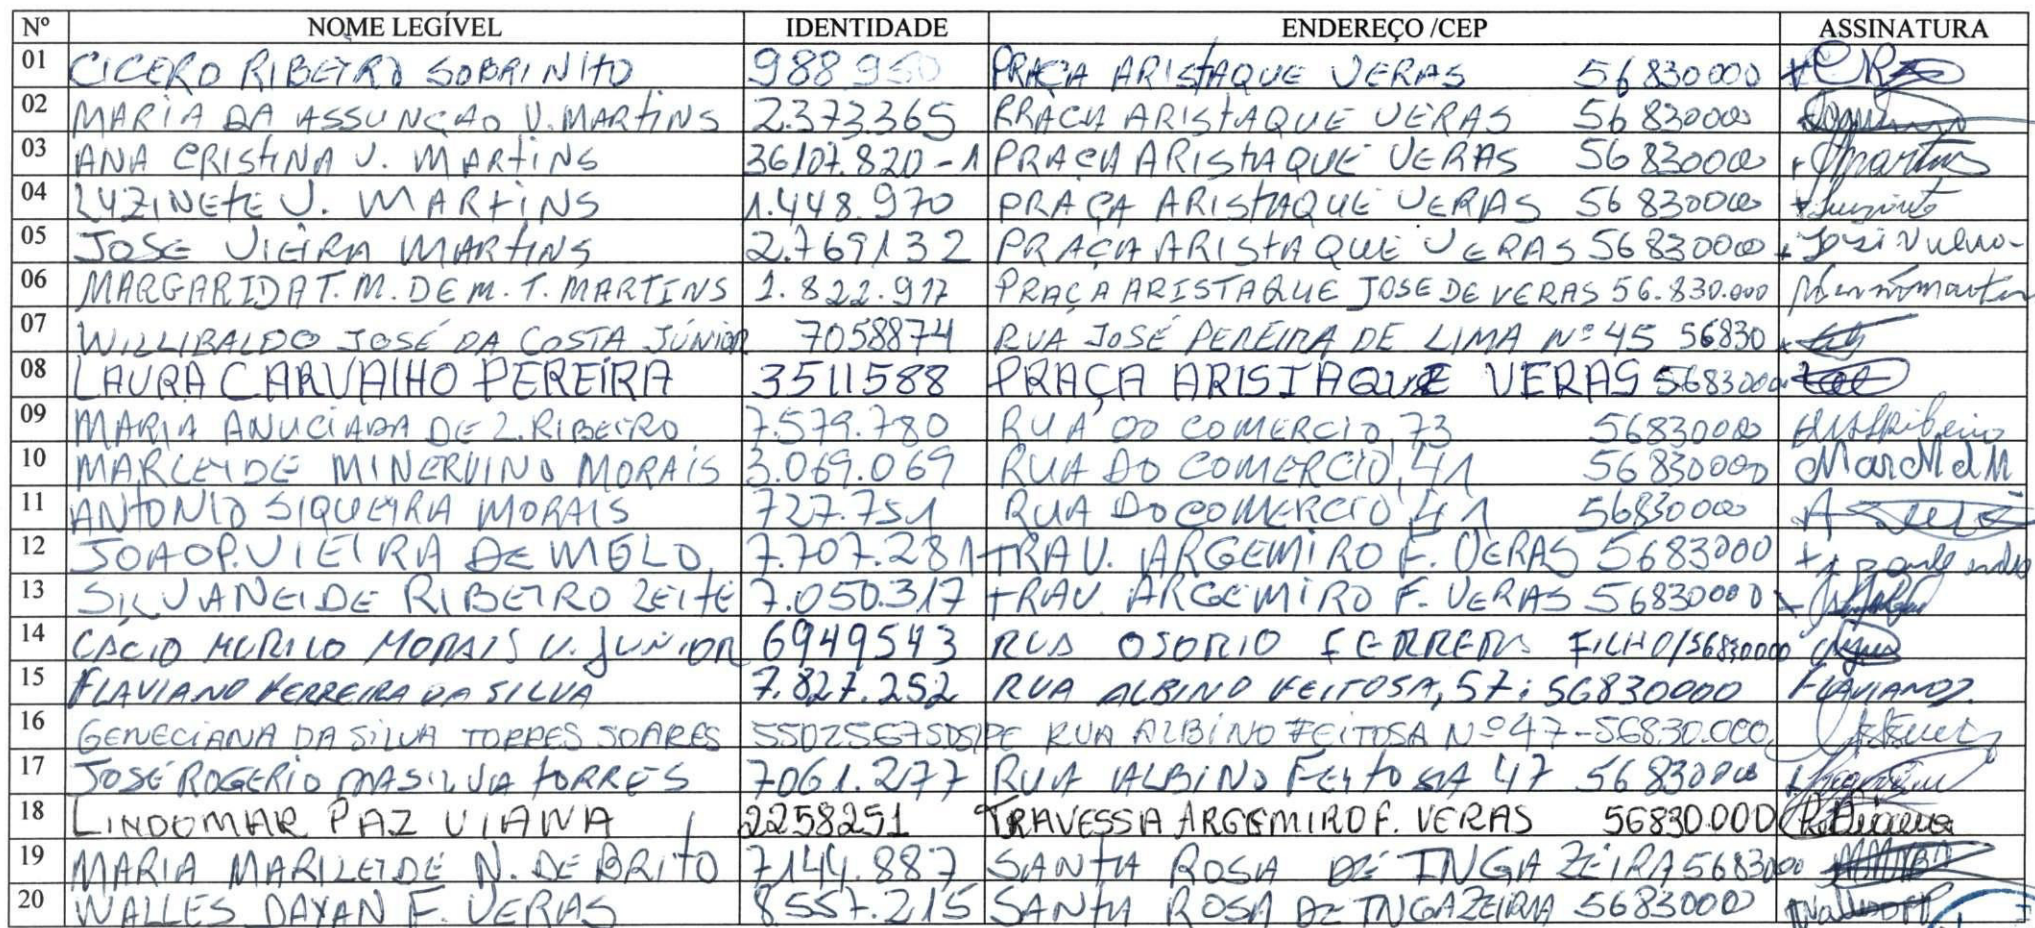 Nº NOME LEGÍVEL IDENTIDADE ENDEREÇO /CEP ASSINATURA
01 CICERO RIBEIRO SOBRINHO 988 950 PRAÇA ARISTAQUE VERAS 56830000
02 MARIA DA ASSUNÇAO V. MARTINS 2.373365 PRAÇA ARISTAQUE VERAS 56830000
03 ANA CRISTINA V. MARTINS 36107.820-1 PRAÇA ARISTAQUE VERAS 56830000 Martins
04 LUZINETE V. MARTINS 1.448.970 PRAÇA ARISTAQUE VERAS 56830000 Luzinete
05 JOSE VIEIRA MARTINS 2.769132 PRAÇA ARISTAQUE VERAS 56830000
06 MARGARIDA T. M. DE M. T. MARTINS 1.822.917 PRAÇA ARISTAQUE JOSE DE VERAS 56.830.000
07 WILLIBALDO JOSÉ DA COSTA JÚNIOR 7058874 RUA JOSÉ PEREIRA DE LIMA Nº 45 56830
08 LAURA CARVALHO PEREIRA 3511588 PRAÇA ARISTAQUE VERAS 56830000
09 MARIA ANUCIADA DE L. RIBEIRO 7.579.780 RUA DO COMERCIO, 73 56830000
10 MARLEIDE MINERVINO MORAIS 3.069.069 RUA DO COMERCIO, 41 56830000
11 ANTONIO SIQUEIRA MORAIS 727.751 RUA DO COMERCIO, 41 56830000
12 JOAO P. VIEIRA DE MELO 7.707.281 TRAV. ARGEMIRO F. VERAS 5683000
13 SILVANEIDE RIBEIRO LEITE 7.050.317 TRAV. ARGEMIRO F. VERAS 56830000
14 CACIO MURILO MORAIS V. JUNIOR 6949543 RUA OSORIO FERREIRA FILHO/56830000
15 FLAVIANO FERREIRA DA SILVA 7.827.252 RUA ALBINO FEITOSA, 57; 56830000
16 GENECIANA DA SILVA TORRES SOARES RUA ALBINO FEITOSA Nº 47-56830.000
17 JOSÉ ROGERIO DA SILVA TORRES 7061.277 RUA ALBINO FEITOSA 47 56830000
18 LINDOMAR PAZ VIANA 2258251 TRAVESSA ARGEMIRO F. VERAS 56830.000
19 MARIA MARILEIDE N. DE BRITO 7144.887 SANTA ROSA DE INGAZEIRA 5683000
20 WALLES DAYAN F. VERAS 8.557.215 SANTA ROSA DE INGAZEIRA 56830000